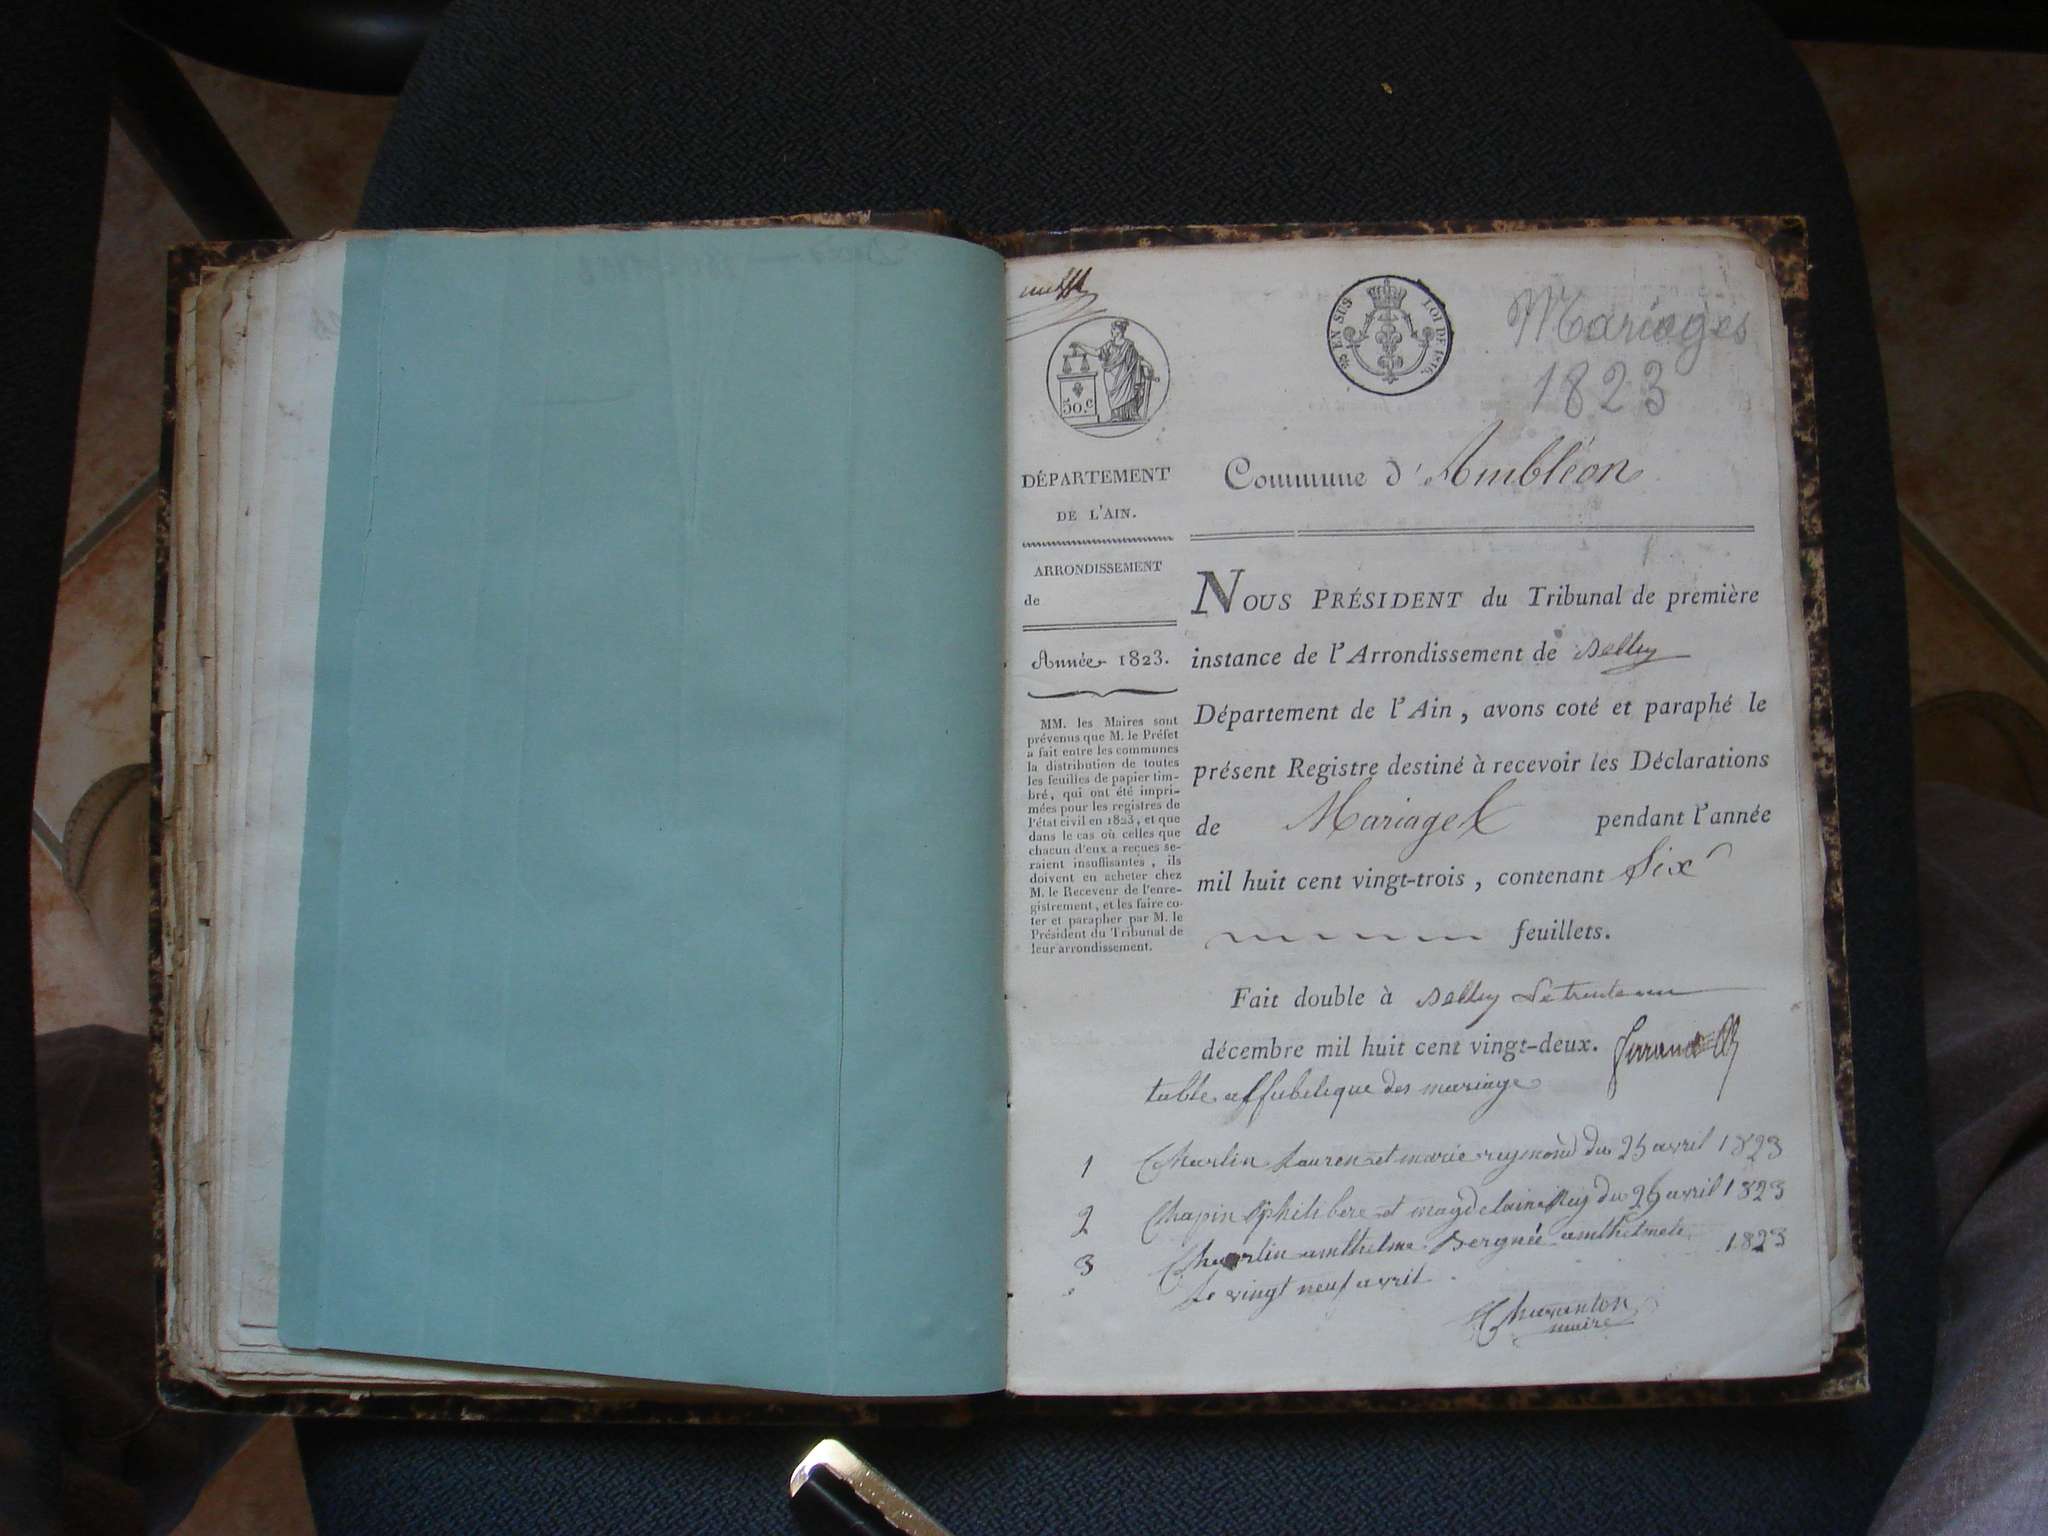 50.c
EN SUS LOI DE 1816.
Mariages
1823
DÉPARTEMENT
DE L'AIN.
ARRONDISSEMENT
de
Année 1823.
MM. les Maires sont
prévenus que M. le Préfet
a fait entre les communes
la distribution de toutes
les feuilles de papier tim-
bré, qui ont été impri-
mées pour les registres de
l'état civil en 1823, et que
dans le cas où celles que
chacun d'eux a reçues se-
raient insuffisantes, ils
doivent en acheter chez
M. le Receveur de l'enre-
gistrement, et les faire co-
ter et parapher par M. le
Président du Tribunal de
leur arrondissement.
Commune d'Ambléon
NOUS PRÉSIDENT du Tribunal de première
instance de l'Arrondissement de Belley
Département de l'Ain, avons coté et paraphé le
présent Registre destiné à recevoir les Déclarations
de Mariages pendant l'année
mil huit cent vingt-trois, contenant Six
feuillets.
Fait double à Belley le trente un
décembre mil huit cent vingt-deux.
table affabetique des mariage
1 Charlin Lauren et marie reymond du 25 avril 1823
2 Chapin philibere et magdelaine Rey du 26 avril 1823
3 Charlin anthelme Bergnié anthelmete 1823
le vingt neuf avril
Charenton
maire